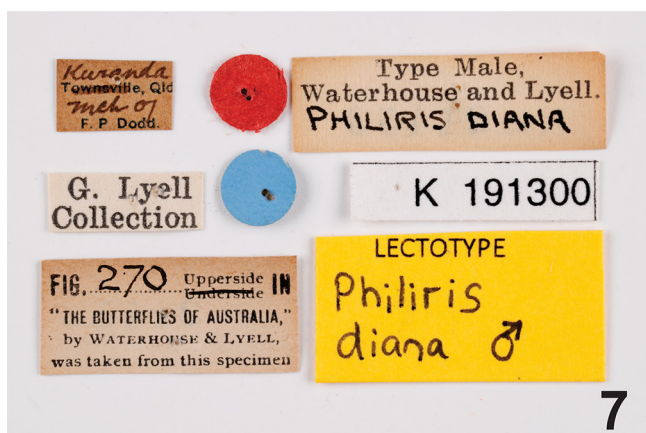 Kuranda
Townsville, Qld
mch 07
F. P. Dodd.
Type Male,
Waterhouse and Lyell.
PHILIRIS DIANA
G. Lyell
Collection
K 191300
FIG. 270 Upperside IN
Underside
"THE BUTTERFLIES OF AUSTRALIA,"
by WATERHOUSE & LYELL,
was taken from this specimen
LECTOTYPE
Philiris
diana ♂
7